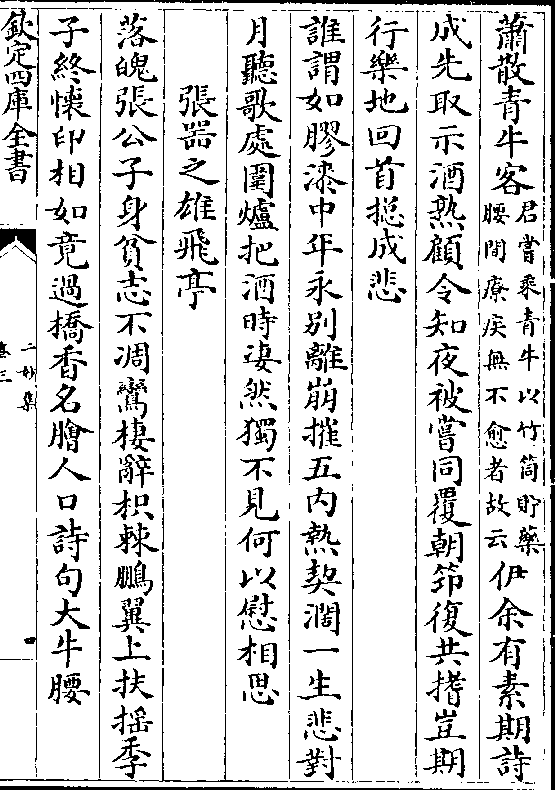 蕭散青牛客君嘗乘青牛以竹筒貯藥腰間療疾無不愈者故云伊余有素期詩
成先取示酒熟顧令知夜被嘗同覆朝節復共搘豈期
行樂地回首摠成悲
誰謂如膠漆中年永別離崩摧五内熱契濶一生悲對
月聽歌處圍爐把酒時淒然獨不見何以慰相思
張器之雄飛亭
落魄張公子身貧志不凋鸞棲辭枳棘鵬翼上扶摇季
子終懷印相如竟過橋香名膾人口詩句大牛腰
欽定四庫全書
二妙集
卷三
四